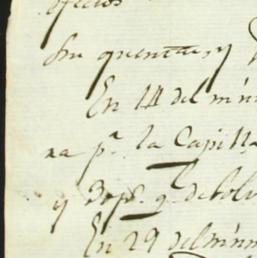 efectos
Su quenta, y
En 14 del mism
na pª. la Capilla
y 3 ps. q. debolv
En 29 del mism